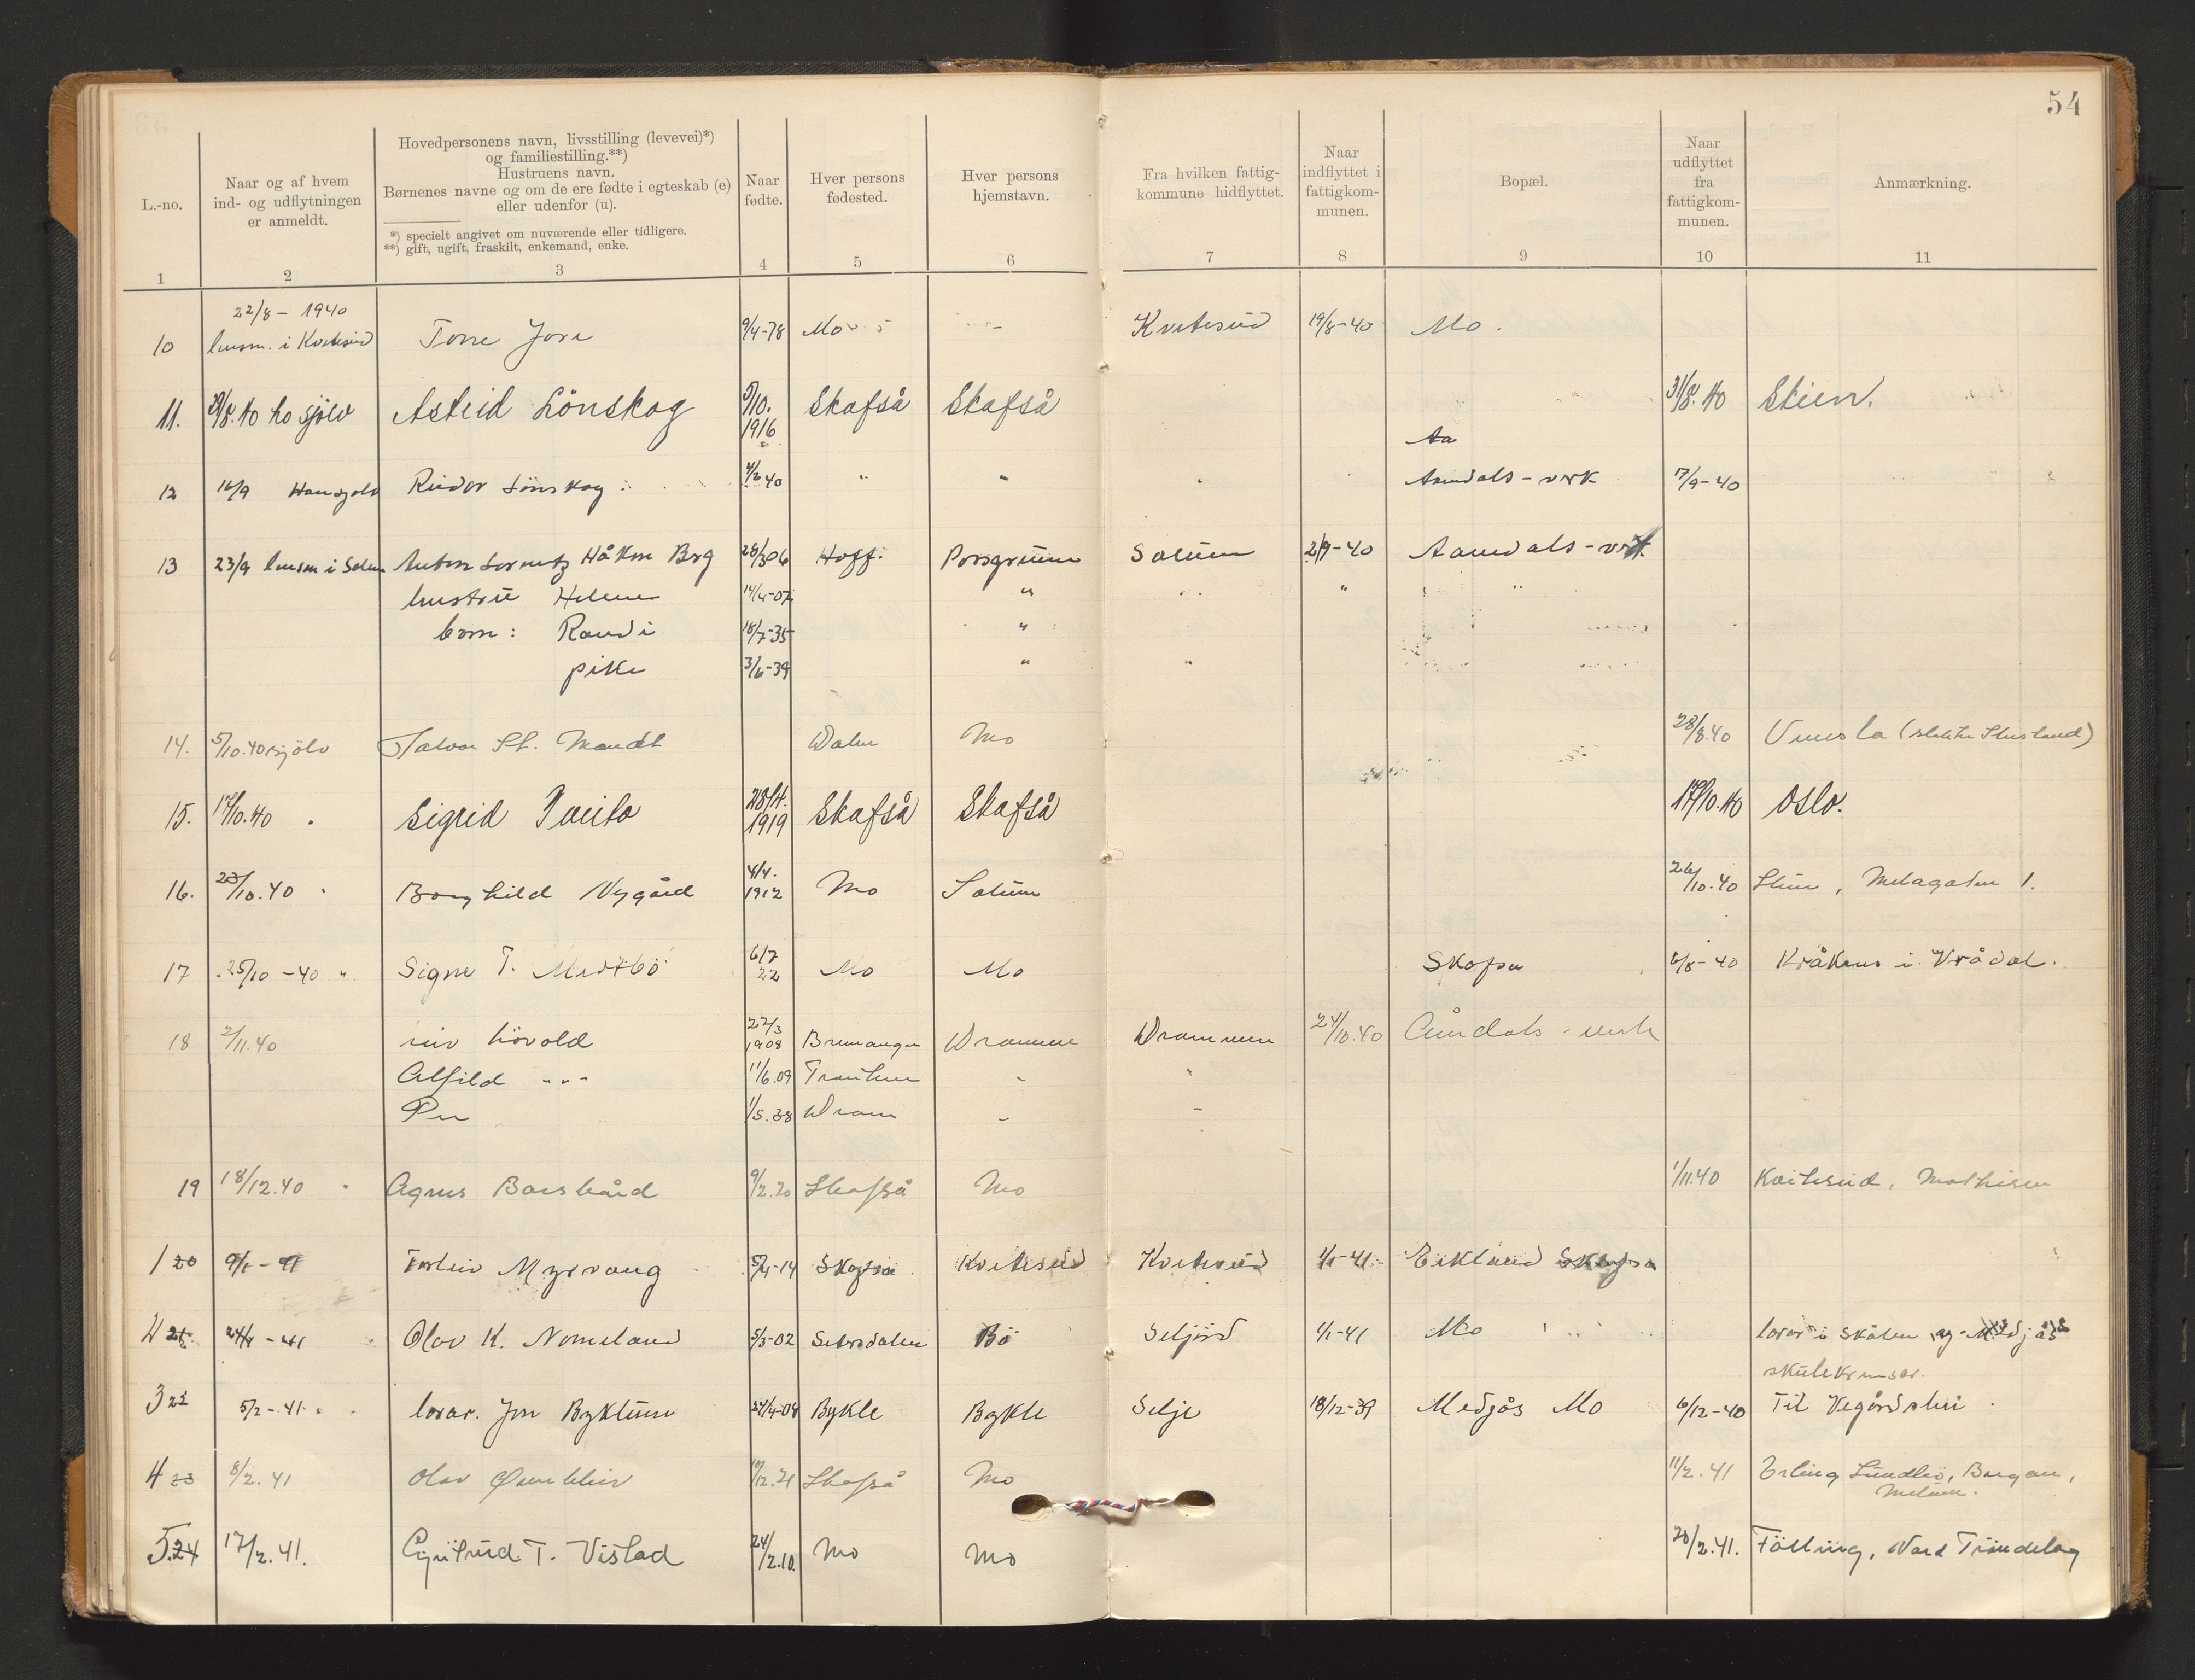 54
L.-no.
Naar og af hvem
ind- og udflytningen
er anmeldt.
Hovedpersonens navn, livsstilling (levevei)*)
og familiestilling.**)
Hustruens navn.
Børnenes navne og om de ere fødte i egteskab (e)
eller udenfor (u).
*) specielt angivet om nuværende eller tidligere.
**) gift, ugift, fraskilt, enkemand, enke.
Naar
fødte.
Hver persons
fødested.
Hver persons
hjemstavn.
Fra hvilken fattig-
kommune hidflyttet.
Naar
indflyttet i
fattigkom-
munen.
Bopæl.
Naar
udflyttet
fra
fattigkom-
munen.
Anmærkning.
1 2 3 4 5 6 7 8 9 10 11
22/8 - 1940
10 lensm. i Kviteseid Tone Jore 9/4-78 Mo Kviteseid 19/8-40 Mo.
11. 29/8.40 ho sjölv Astrid Lönskog 5/10. 1916 Skafså Skafså 31/8.40 Skien.
Aa
12 16/9 Han sjølv Reidar Lönskog 4/2 40 " " Aamdals-verk 17/9-40
13 23/9 lensm i Solum Anton Lorentz Håkon Berg 28/3 06 Hoff. Porsgrunn Solum 2/9-40 Aamdals-verk
hustru Helene 14/4-07 " " "
born: Randi 18/7-35 "
pike 3/6-39 " "
14. 5/10.40 sjölv Halvor St. Mandt Dalen Mo 28/8.40
15. 17/10.40 Sigrid Tveito 28/4. 1919 Skafså Skafså 17/10.40 Oslo.
16. 23/10.40 Borghild Nygård 4/4. 1912 Mo Solum 26/10.40 Skien, Melagaten 1.
17 25/10-40 " Signe T. Midtbö 6/7 22 Mo Mo Skafsa 6/8-40 Kråknes i Vrådal.
18 2/11.40 Liv Lövold 22/3 1908 Bremanger Drammen Drammen 24/10.40 Åmdals-verk
Alfild -"- 11/6.09
Per 1/5.38 Dram
19 18/12.40 Agnes Borsgård 9/2.20 Skafså Mo 1/11.40 Kviteseid, Mathisen
1 20 9/1-41 Torleiv Myrvang 5/4-14 Skafså Kviteseid Kviteseid 1/1-41 Eiklund Skafså
2 21 24/1-41 Olav K. Nomeland 5/3-02 Setesdalen Bö Seljord 1/1-41 Mo lærar i Skålen og Medjås
skulekrinser.
3 22 5/2-41 lærar. Jon Byklum 24/4-04 Bykle Bykle Selje 18/12-39 Medjås Mo 6/12-40 Til Vegårdshei
4 23 8/2.41 Olav 10/12.21 Skafså Mo 11/2.41 Erling Sundbö, Borgan,
Melum.
5. 24 17/2.41. Gyitrud T. Vistad 24/2.10. Mo Mo 20/2.41. Fölling, Nord Tröndelag